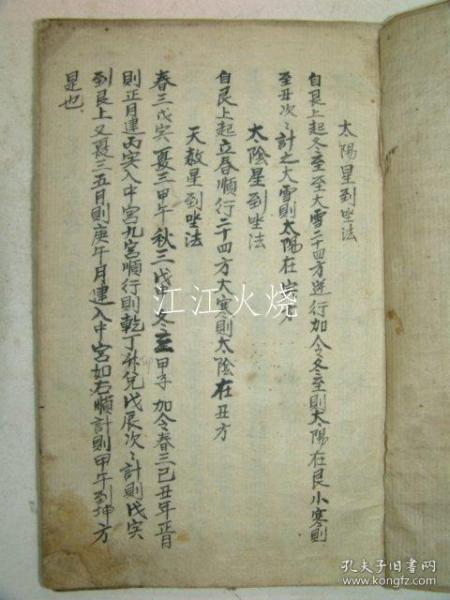 太陽星到坐法
自艮上起冬至至大雪二十四方逆行加令冬至則太陽在艮小寒則
至丑次〻計之大雪則太陽在寅方
太陰星到坐法
自艮上起立春順行二十四方大寒則太陰在丑方
天赦星到坐法
春三戊寅夏三甲午秋三戊申冬三甲子加令春三己丑年正月
則正月建丙寅入中宮九宮順行則乾丁卯兌戊辰次〻計則戊寅
到艮上又夏三五月則庚午月建入中宮如右順計則甲午到坤方
是也
江江火烧
孔夫子旧书网
www.kongfz.com